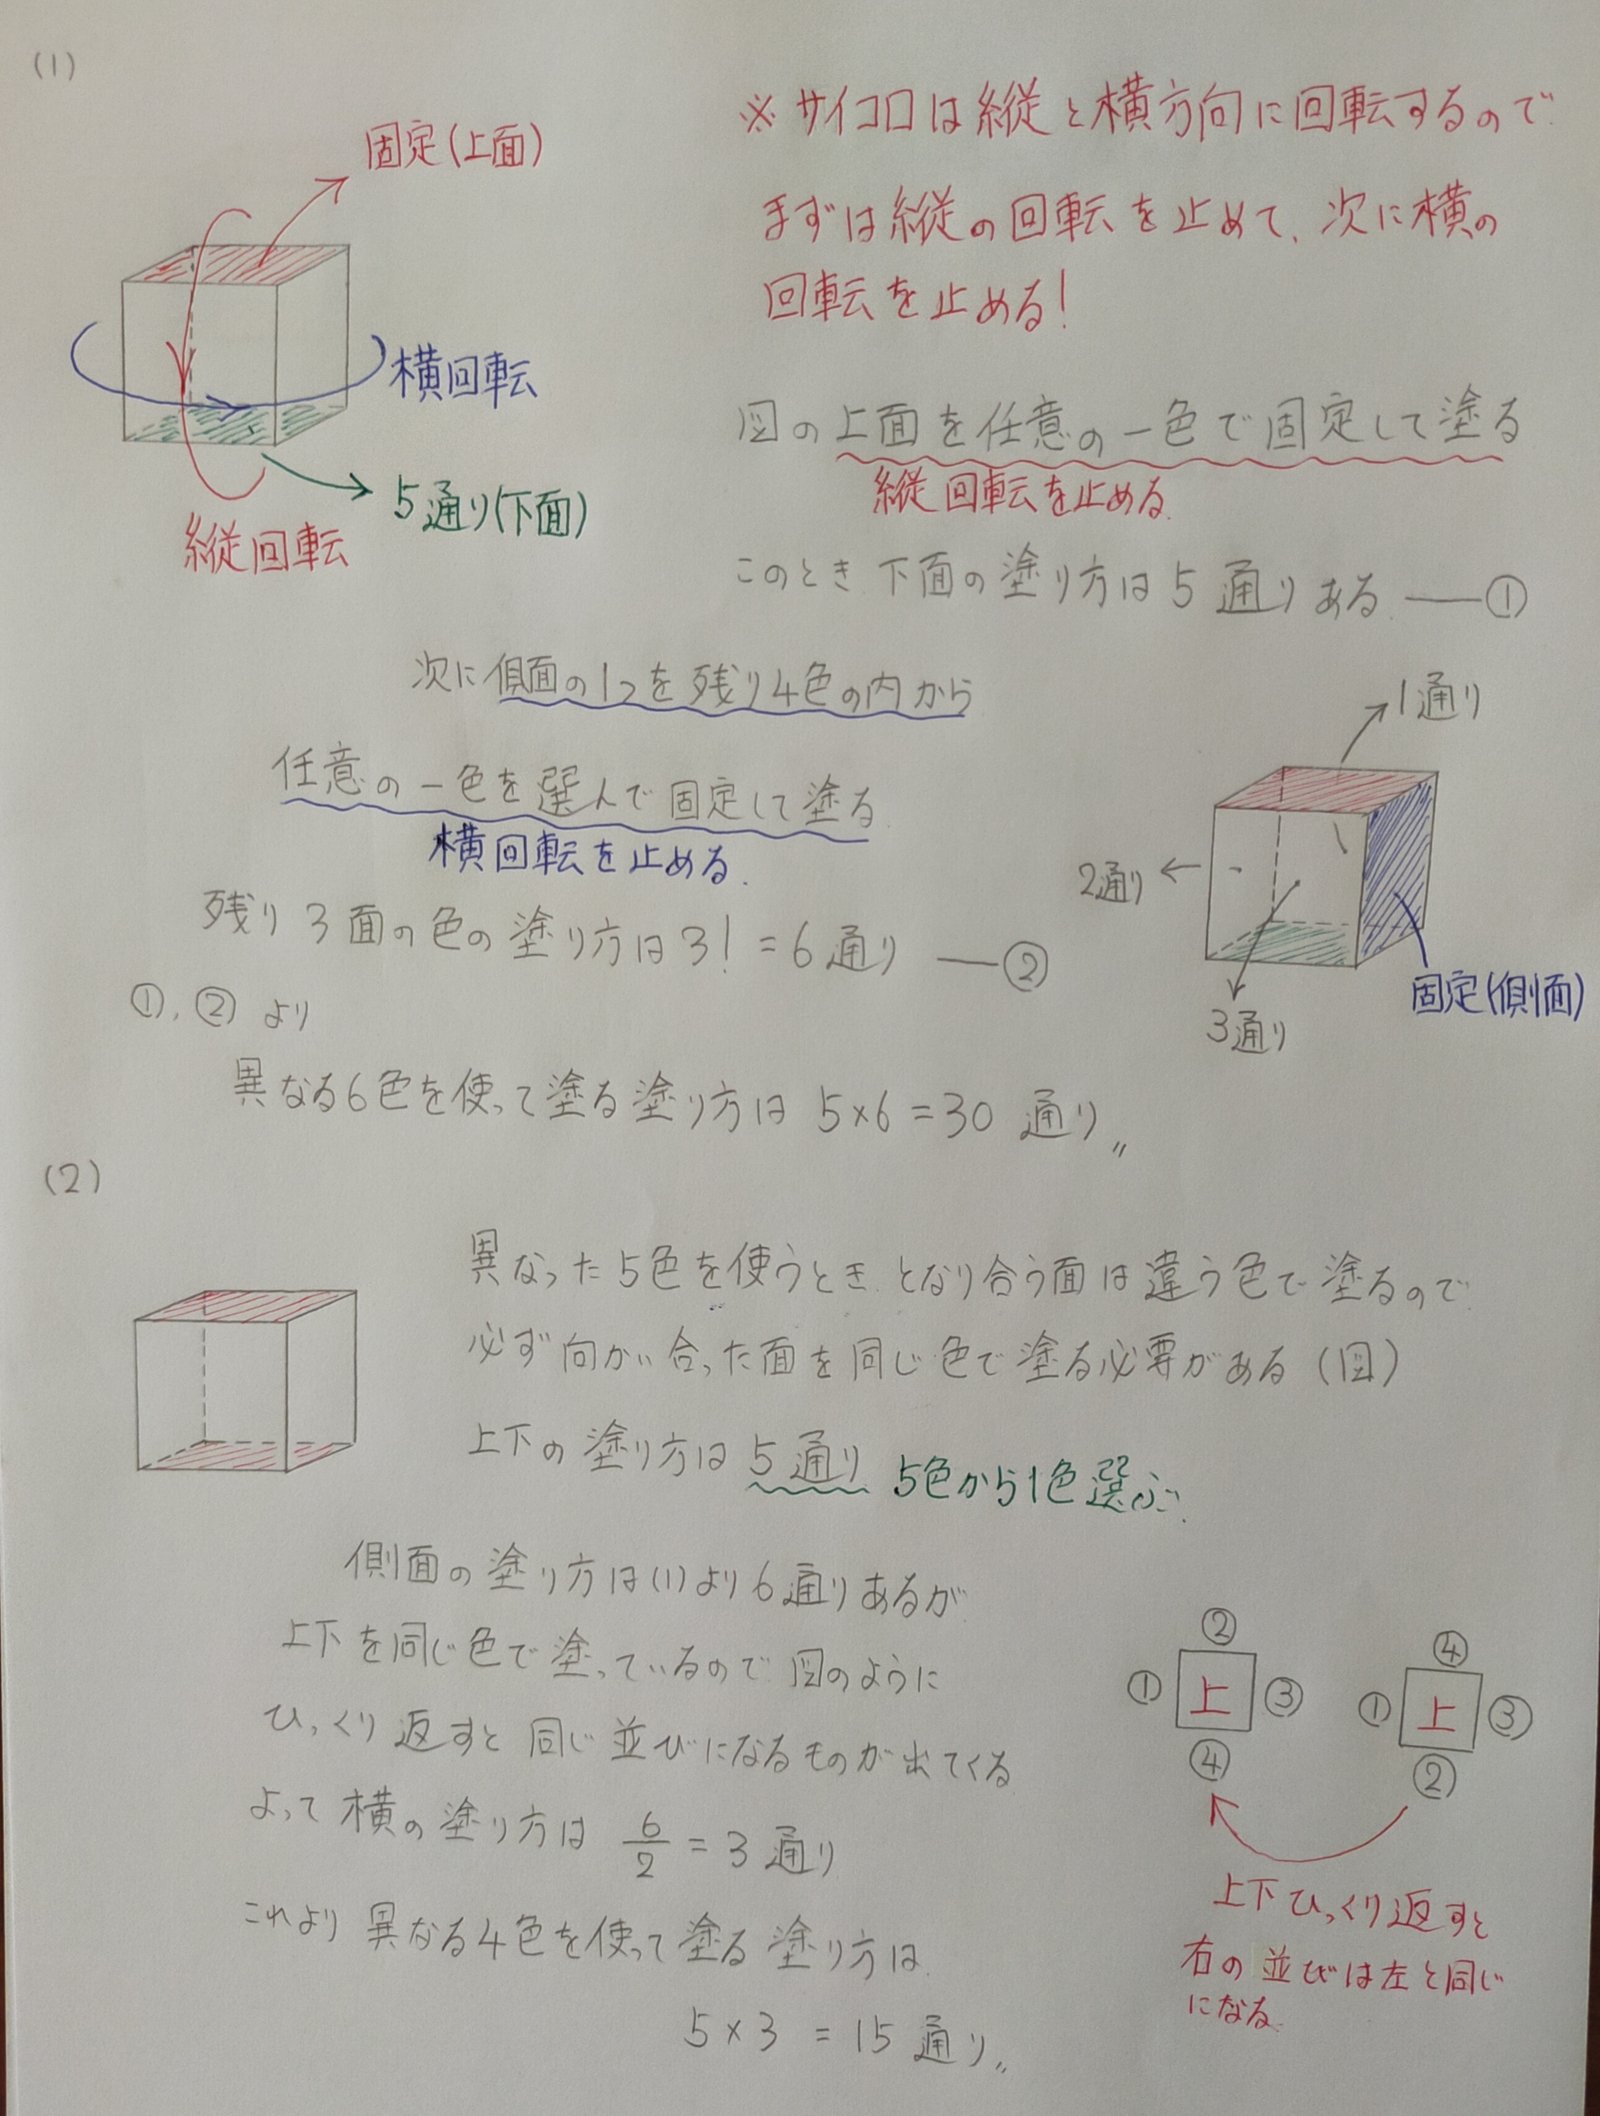 (1)
固定(上面)
横回転
5通り(下面)
縦回転
※サイコロは縦と横方向に回転するので
まずは縦の回転を止めて、次に横の
回転を止める!
図の上面を任意の一色で固定して塗る
縦回転を止める.
このとき下面の塗り方は5通りある. ―①
次に側面の1つを残り4色の内から
任意の一色を選んで固定して塗る.
横回転を止める.
残り3面の色の塗り方は3! = 6通り ―②
1通り
2通り
3通り
固定(側面)
①, ②より
異なる6色を使って塗る塗り方は 5×6=30 通り〃
(2)
異なった5色を使うとき となり合う面は違う色で塗るので
必ず向かい合った面を同じ色で塗る必要がある (図)
上下の塗り方は5通り 5色から1色選ぶ.
側面の塗り方は(1)より6通りあるが
上下を同じ色で塗っているので図のように
ひっくり返すと同じ並びになるものが出てくる
よって横の塗り方は 6/2 = 3通り
これより異なる4色を使って塗る塗り方は.
5×3 = 15通り〃
②
① 上 ③
④
④
① 上 ③
②
上下ひっくり返すと
右の並びは左と同じ
になる.